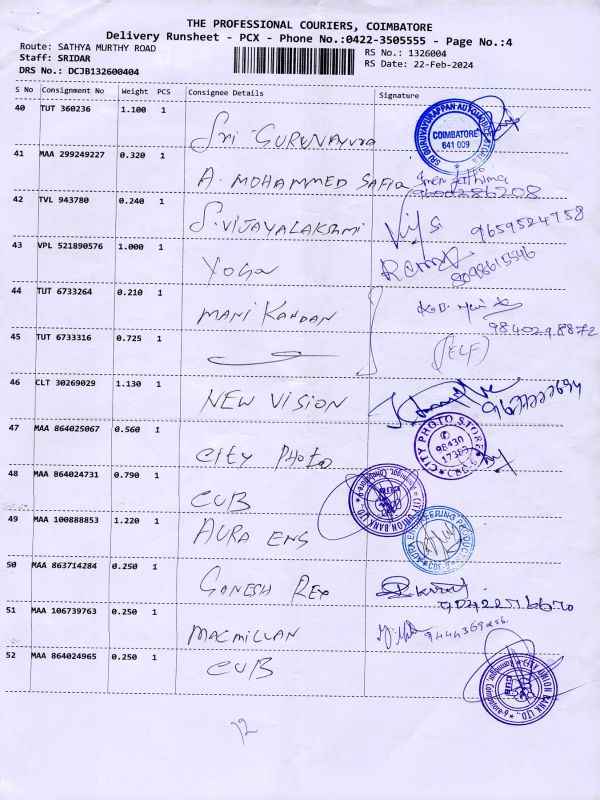 THE PROFESSIONAL COURIERS, COIMBATORE
Delivery Runsheet - PCX - Phone No.:0422-3505555 - Page No.:4
Route: SATHYA MURTHY ROAD
Staff: SRIDAR
DRS No.: DCJB132600404
RS No.: 1326004
RS Date: 22-Feb-2024
S No Consignment No Weight PCS Consignee Details Signature
40 TUT 360236 1.100 1
Sri GURUVAYURA
SRI GURUVAYURAPPAN AUTOMOBILE STORES COIMBATORE 641 009
41 MAA 299249227 0.320 1
A. MOHAMMED SAFIQ
9600286208
42 TVL 943780 0.240 1
S. VIJAYALAKSHMI
9659524758
43 VPL 521890576 1.000 1
YOGA
44 TUT 6733264 0.210 1
MANI KANDAN
9840298872
45 TUT 6733316 0.725 1
(SELF)
46 CLT 30269029 1.130 1
NEW VISION
47 MAA 864025067 0.560 1
CITY PHOTO
CITY PHOTO STORE 98430 17389 CBE-9
48 MAA 864024731 0.790 1
CUB
CITY UNION BANK LTD.
49 MAA 100888853 1.220 1
AURA ENG
AURA ENGINEERING PRODUCTS
50 MAA 863714284 0.250 1
GANESH REX
51 MAA 106739763 0.250 1
MACMILLAN
52 MAA 864024965 0.250 1
CUB
CITY UNION BANK LTD.
12